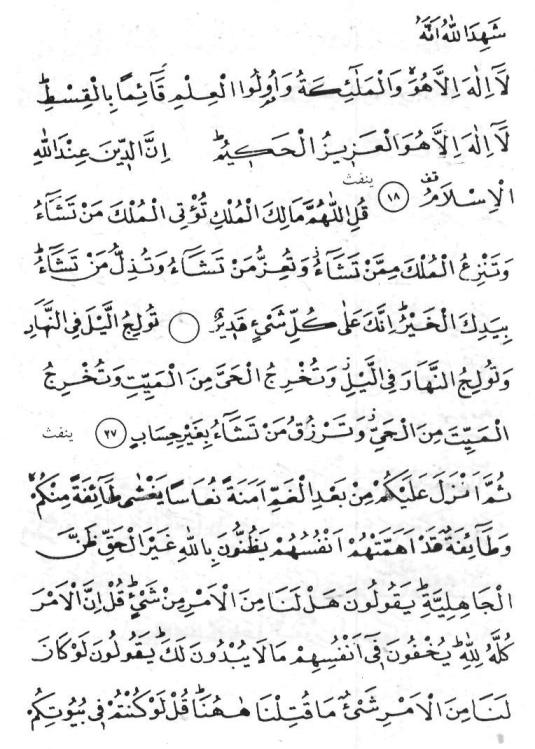 شَهِدَ اللّٰهُ اَنَّهُ
لَآ اِلٰهَ اِلَّا هُوَۙ وَالْمَلٰٓئِكَةُ وَاُولُوا الْعِلْمِ قَٓائِمًا بِالْقِسْطِۜ
لَآ اِلٰهَ اِلَّا هُوَ الْعَزٖيزُ الْحَكٖيمُۜ اِنَّ الدّٖينَ عِنْدَ اللّٰهِ
الْاِسْلَامُ قف ﴿١٨﴾ ينفث قُلِ اللّٰهُمَّ مَالِكَ الْمُلْكِ تُؤْتِى الْمُلْكَ مَنْ تَشَٓاءُ
وَتَنْزِعُ الْمُلْكَ مِمَّنْ تَشَٓاءُؗ وَتُعِزُّ مَنْ تَشَٓاءُ وَتُذِلُّ مَنْ تَشَٓاءُۜ
بِيَدِكَ الْخَيْرُۜ اِنَّكَ عَلٰى كُلِّ شَيْءٍ قَدٖيرٌ ۝ تُولِجُ الَّيْلَ فِى النَّهَارِ
وَتُولِجُ النَّهَارَ فِى الَّيْلِؗ وَتُخْرِجُ الْحَىَّ مِنَ الْمَيِّتِ وَتُخْرِجُ
الْمَيِّتَ مِنَ الْحَىِّؗ وَتَرْزُقُ مَنْ تَشَٓاءُ بِغَيْرِ حِسَابٍ ﴿٢٧﴾ ينفث
ثُمَّ اَنْزَلَ عَلَيْكُمْ مِنْ بَعْدِ الْغَمِّ اَمَنَةً نُعَاسًا يَغْشٰى طَٓائِفَةً مِنْكُمْۙ
وَطَٓائِفَةٌ قَدْ اَهَمَّتْهُمْ اَنْفُسُهُمْ يَظُنُّونَ بِاللّٰهِ غَيْرَ الْحَقِّ ظَنَّ
الْجَاهِلِيَّةِۜ يَقُولُونَ هَلْ لَنَا مِنَ الْاَمْرِ مِنْ شَيْءٍۜ قُلْ اِنَّ الْاَمْرَ
كُلَّهُ لِلّٰهِۜ يُخْفُونَ فٖٓى اَنْفُسِهِمْ مَا لَا يُبْدُونَ لَكَۜ يَقُولُونَ لَوْ كَانَ
لَنَا مِنَ الْاَمْرِ شَيْءٌ مَا قُتِلْنَا هٰهُنَاۜ قُلْ لَوْ كُنْتُمْ فٖى بُيُوتِكُمْ